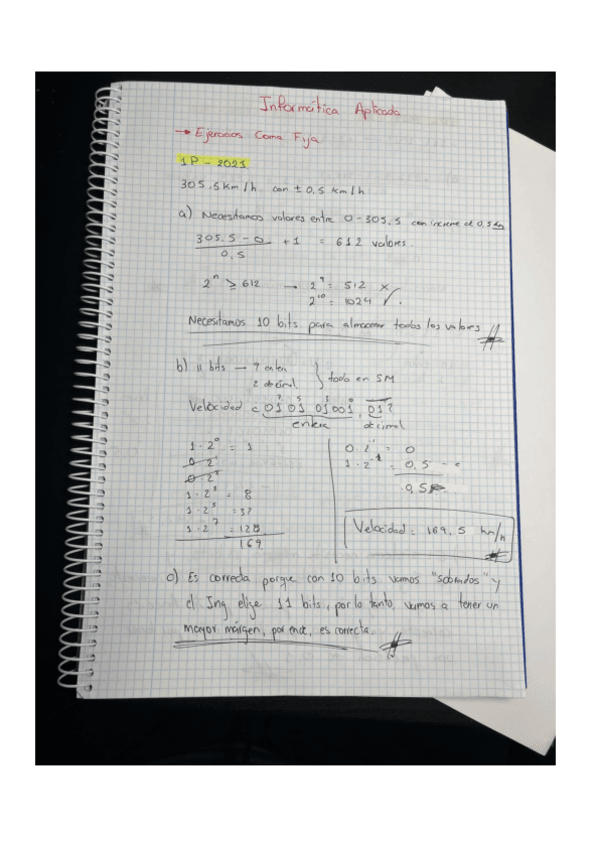 Informática Aplicada
→ Ejercicios Coma Fija
1P - 2021
305.5 Km/h con ± 0,5 km/h
a) Necesitamos valores entre 0 - 305,5 con increme de 0,5
305.5 - 0 / 0,5 + 1 = 612 valores.
2^n ≥ 612 → 2^9 = 512 ×
2^10 = 1024 ✓.
Necesitamos 10 bits para almacenar todos los valores
b) 11 bits — 9 enter
2 decimal } todo en SM
Velocidad c 01 01 01001, 01?
entera decimal
1·2^0 = 1
0·2
0·2
1·2^3 = 8
1·2^5 = 32
1·2^7 = 128
169
0·2 = 0
1·2 = 0,5
0,5
Velocidad: 169,5 km/h
c) Es correcta porque con 10 bits vamos "sobrados" y
el Ing. elige 11 bits, por lo tanto, vamos a tener un
mayor márgen, por ende, es correcta.